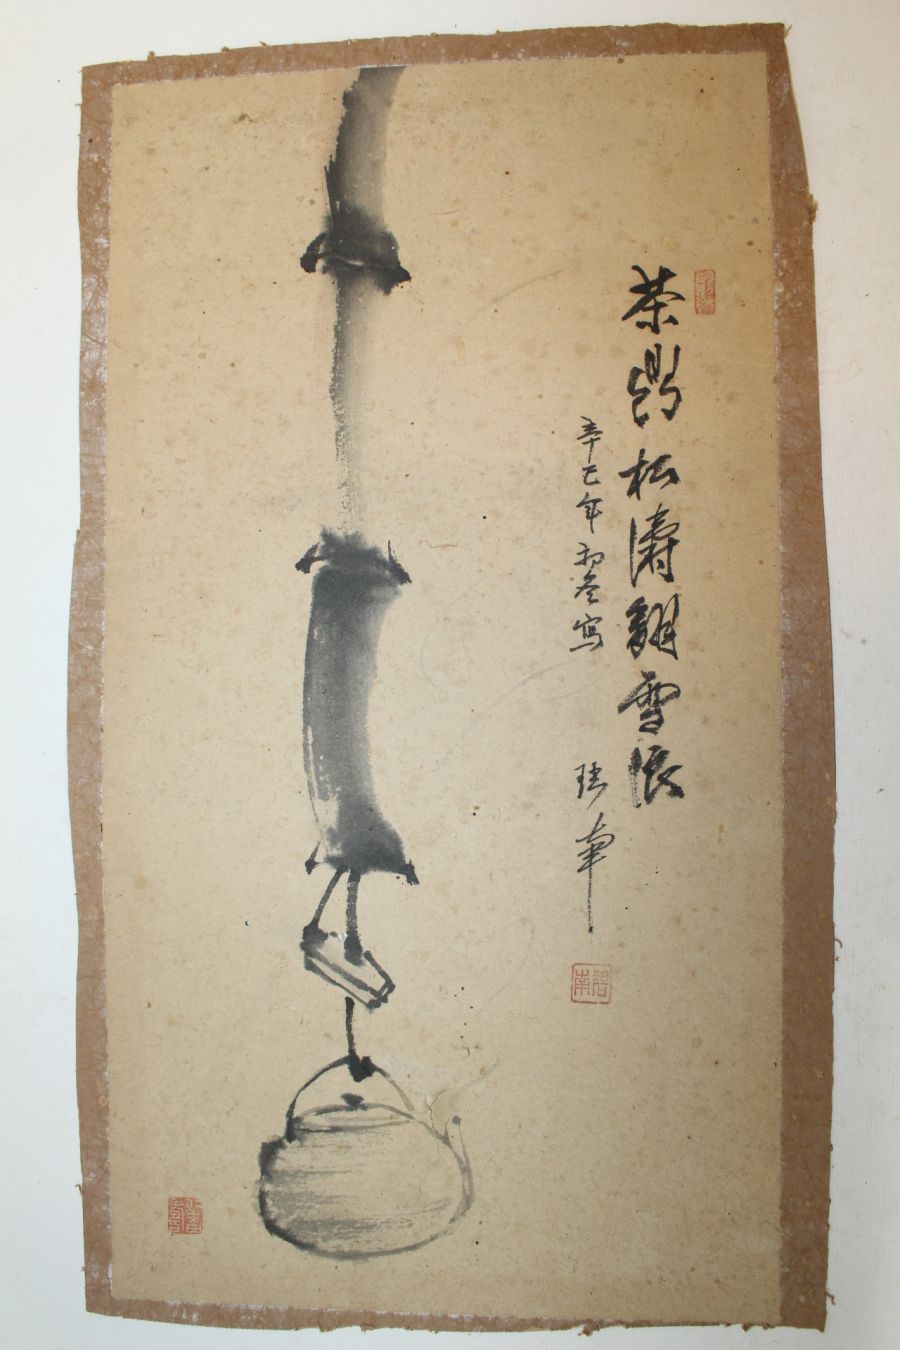 茶鼎松濤翻雪浪
辛巳年初冬寫
碧南